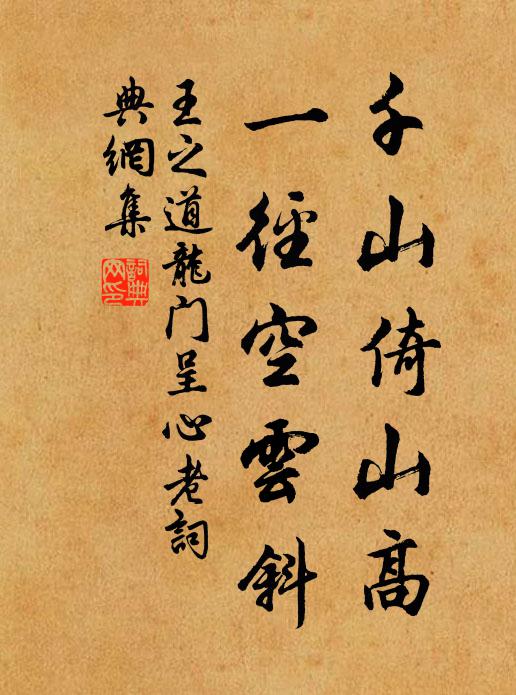 千山倚山高
一径空雲斜
王之道龍门呈心老詞
典網集
詞典
网印